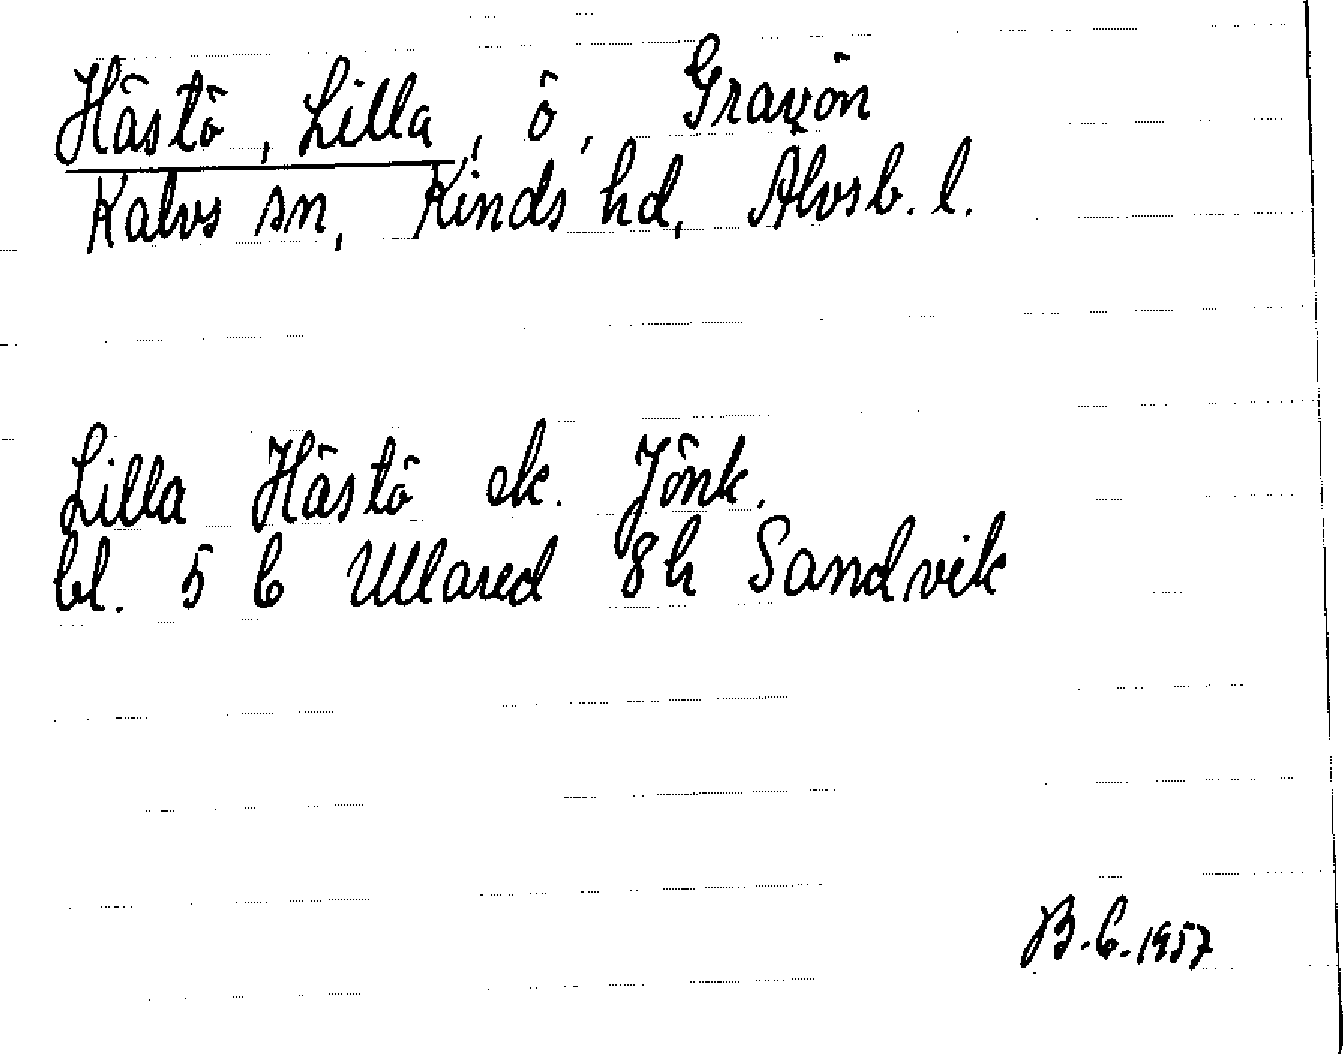 Hästö, Lilla, ö, Gravön
Kalvs sn, Kinds hd, Älvsb. l.
Lilla Hästö ek. Jönk.
bl. 5 C Ullared 8h Sandvik
B.C. 1957